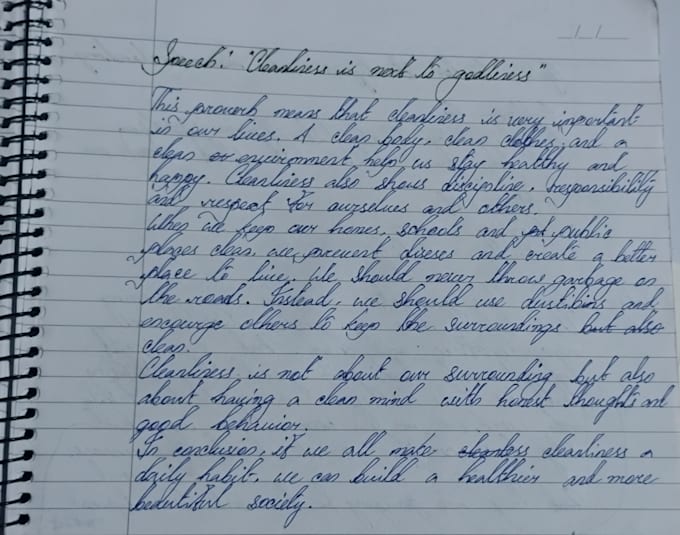 Speech: "Cleanliness is next to godliness"
This proverb means that cleanliness is very important
in our lives. A clean body, clean clothes, and a
clean environment help us stay healthy and
happy. Cleanliness also shows discipline, responsibility
and respect for ourselves and others.
When we keep our homes, schools and public
places clean, we prevent diseses and create a better
place to live. We should never throw garbage on
the roads. Instead, we should use dustbins and
encourge others to keep the surroundings but also
clean.
Cleanliness is not about our surrounding but also
about having a clean mind with honest thoughts and
good behavior.
In conclusion, if we all make cleanless cleanliness a
daily habit, we can build a healthier and more
beautiful society.